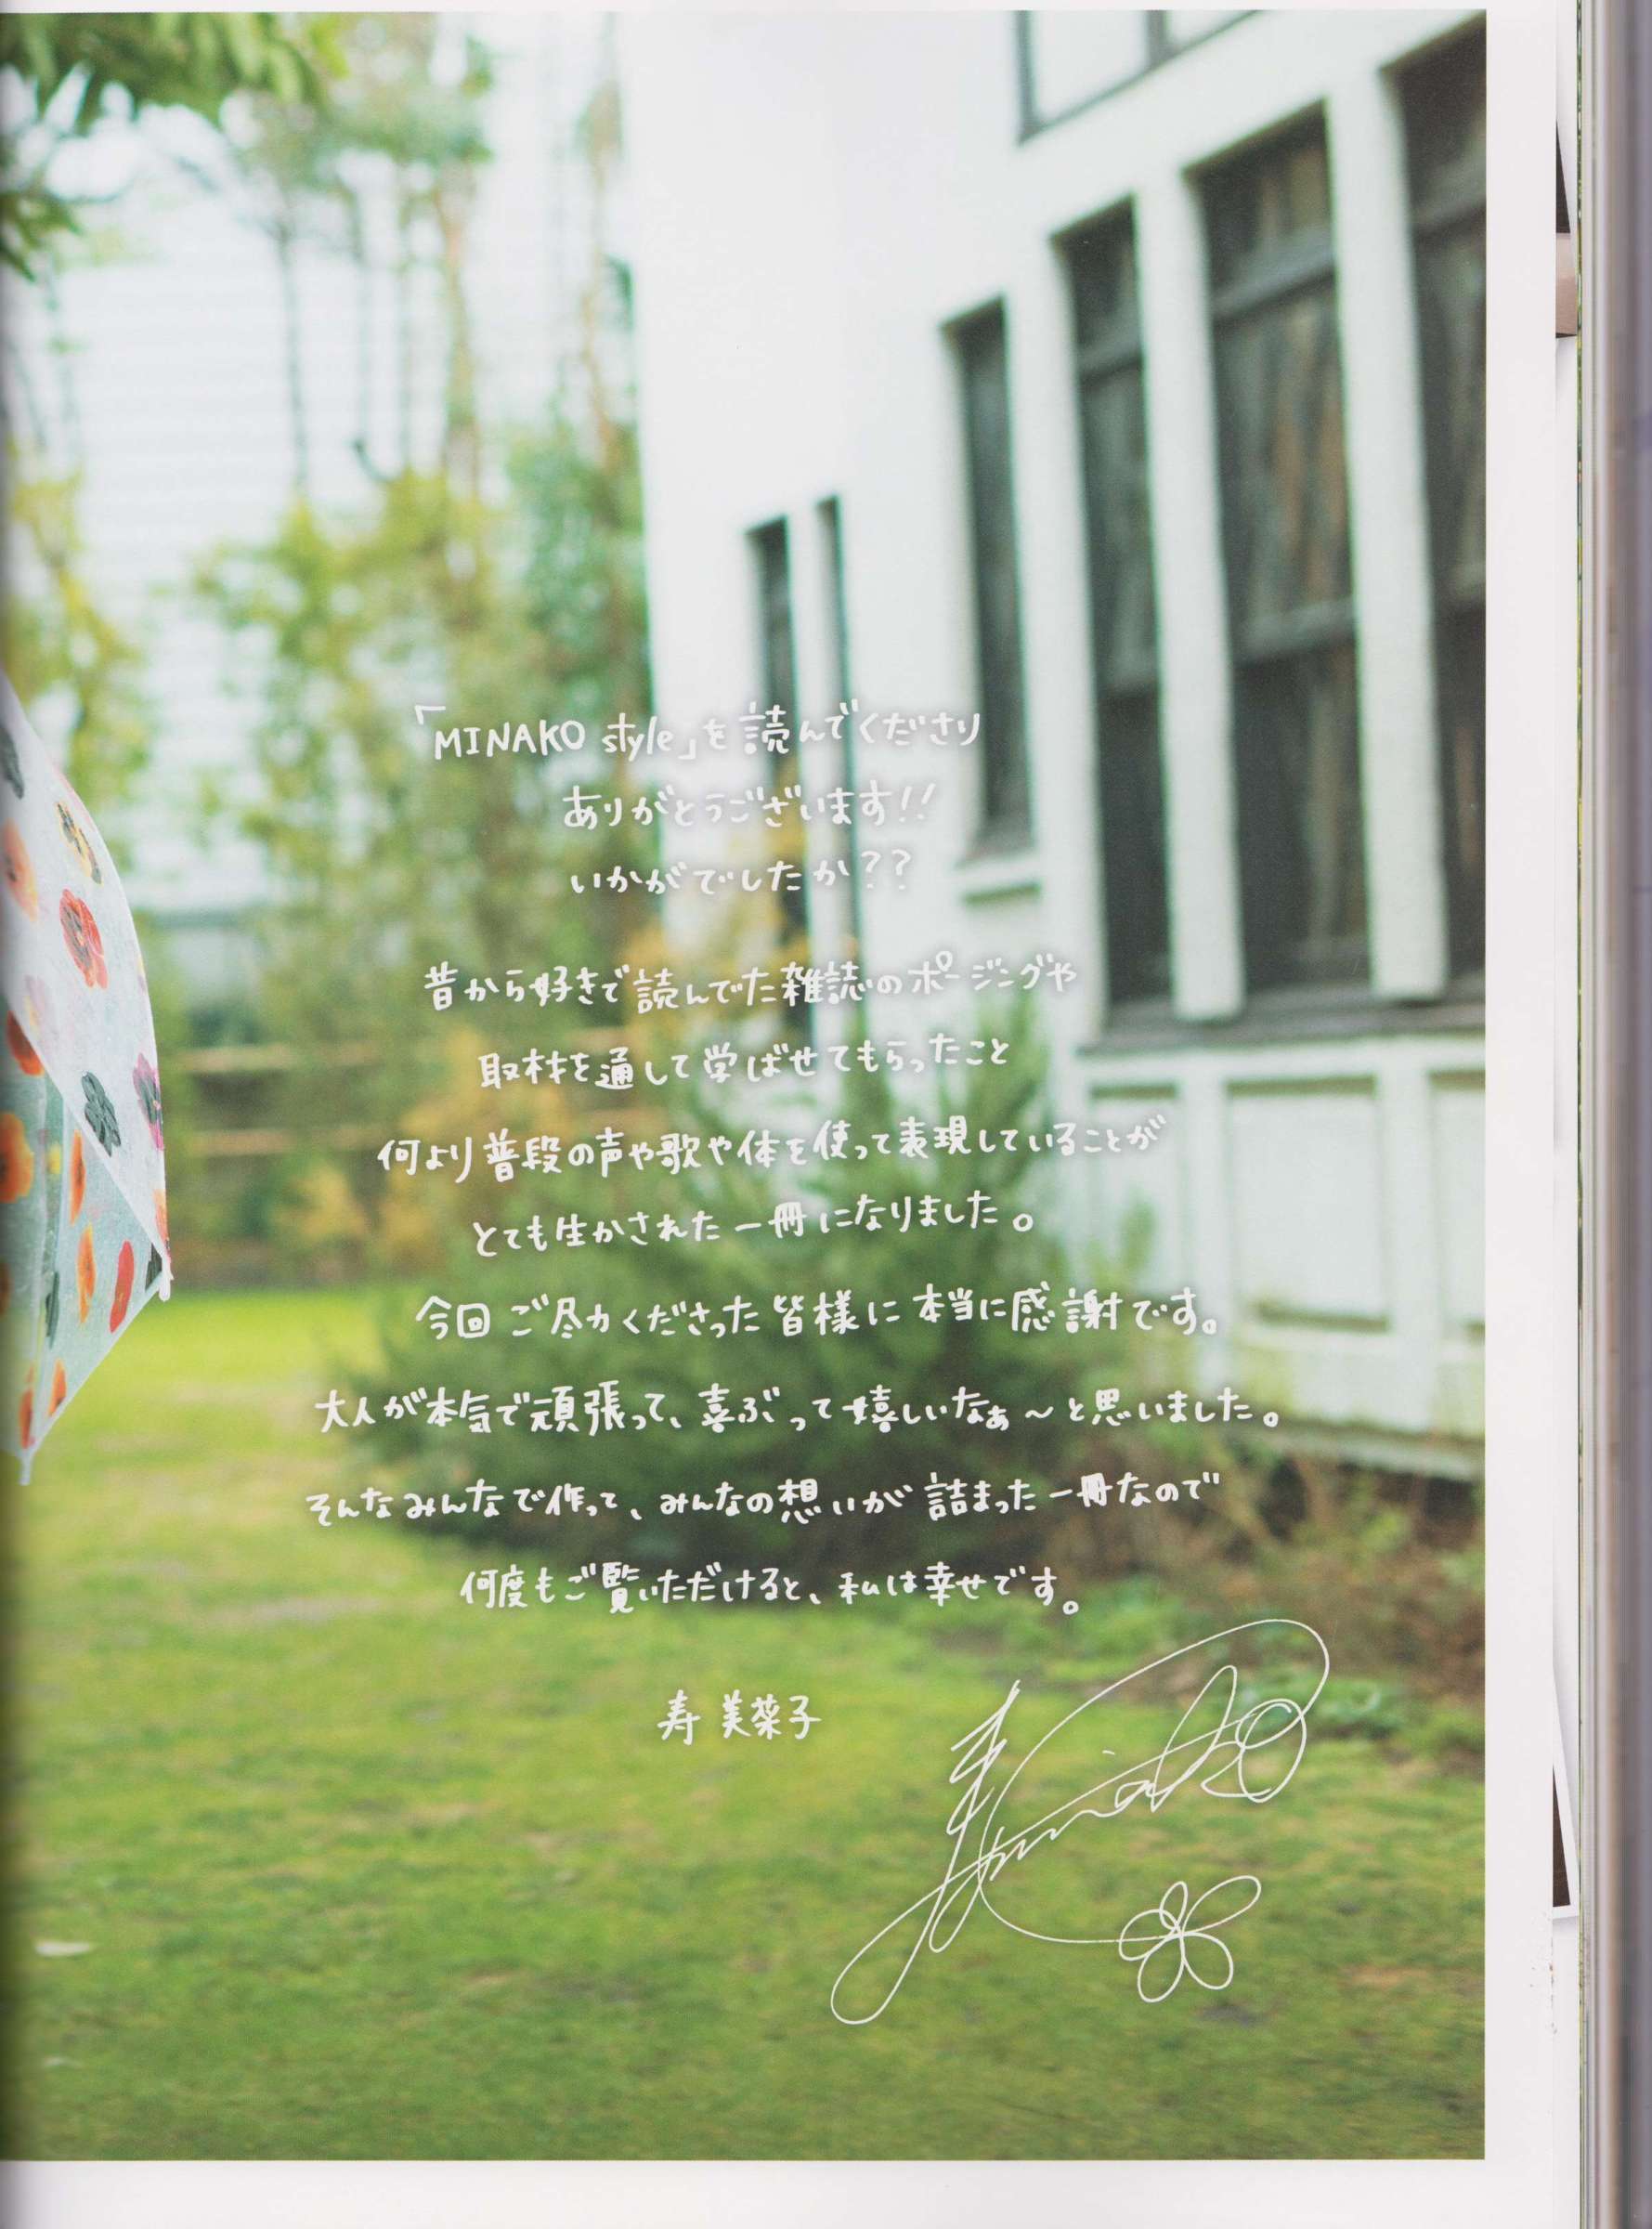 「MINAKO style」を読んでくださり
ありがとうございます!!
いかがでしたか??
昔から好きで読んでた雑誌のポージングや
取材を通して学ばせてもらったこと
何より普段の声や歌や体を使って表現していることが
とても生かされた一冊になりました。
今回ご尽力くださった皆様に本当に感謝です。
大人が本気で頑張って、喜ぶって嬉しいなぁ〜と思いました。
そんなみんなで作って、みんなの想いが詰まった一冊なので
何度もご覧いただけると、私は幸せです。
寿 美菜子
寿 Minako